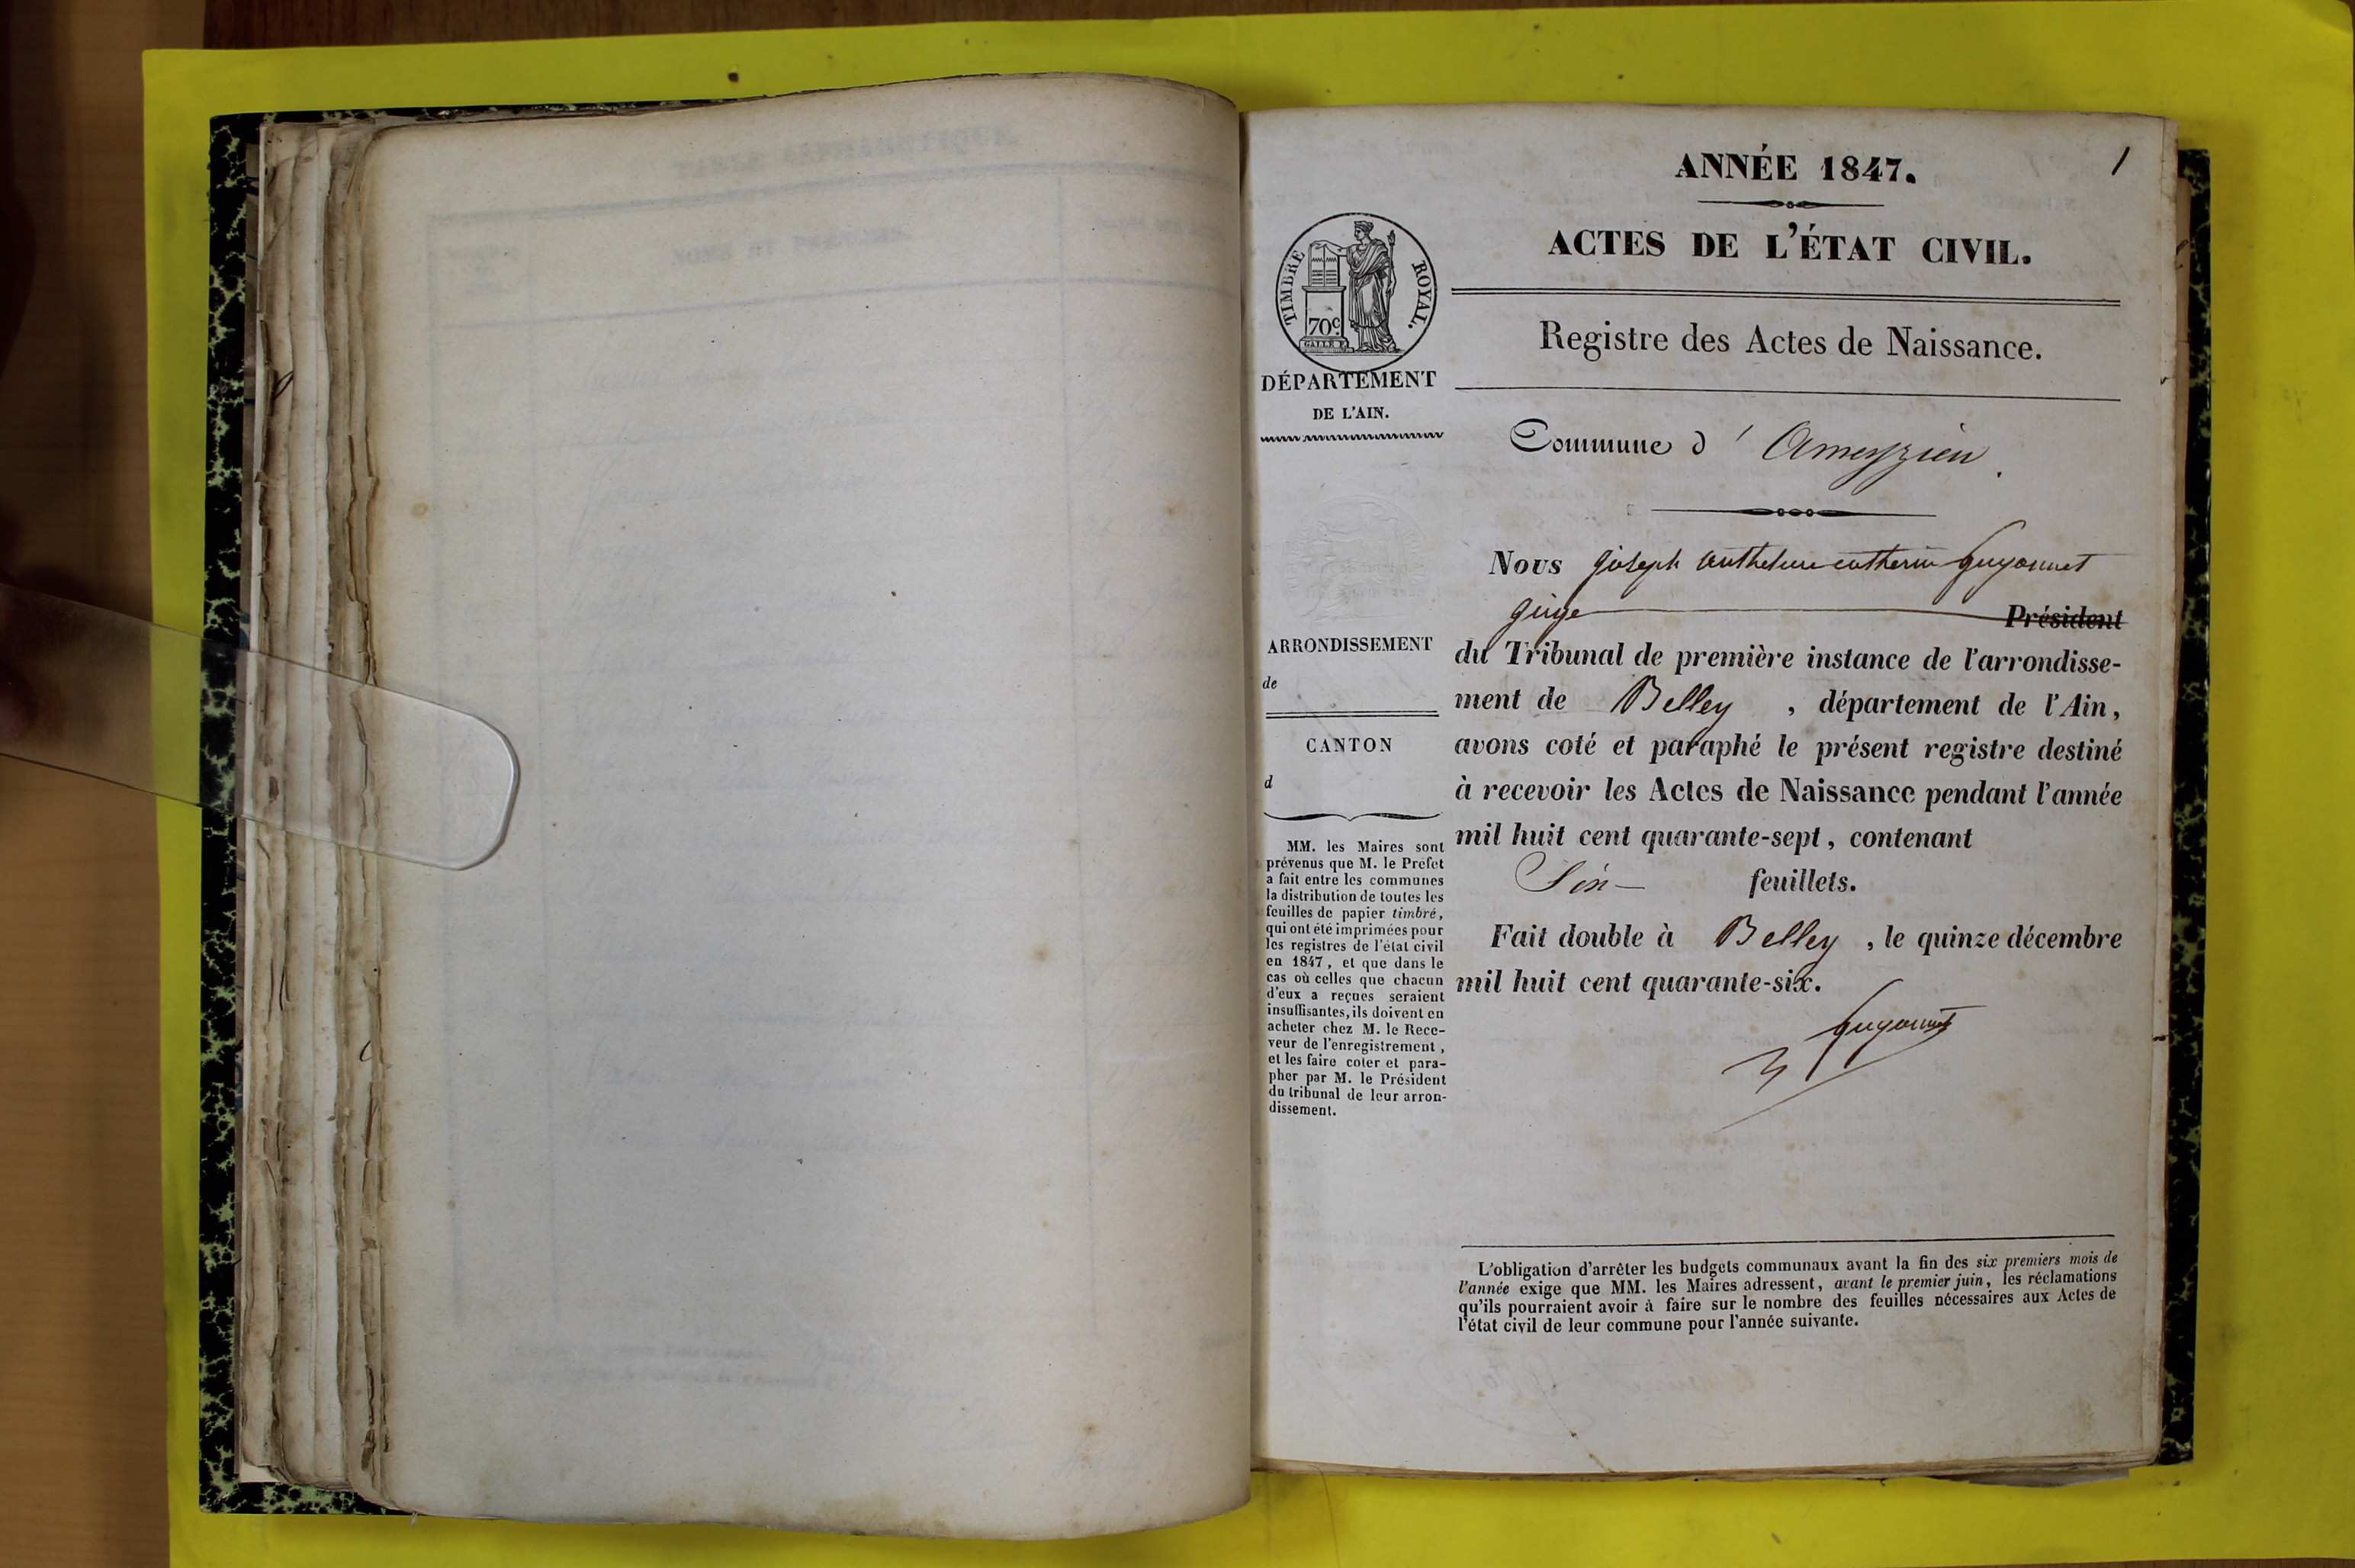 ANNÉE 1847.
1
ACTES DE L'ÉTAT CIVIL.
TIMBRE ROYAL.
70c
Registre des Actes de Naissance.
DÉPARTEMENT
DE L'AIN.
Commune d' Ameyzieu
Nous Joseph Guyonnet
juge Président
du Tribunal de première instance de l'arrondisse-
ment de Belley , département de l'Ain,
avons coté et paraphé le présent registre destiné
à recevoir les Actes de Naissance pendant l'année
mil huit cent quarante-sept, contenant
Six feuillets.
Fait double à Belley , le quinze décembre
mil huit cent quarante-six.
Guyonnet
ARRONDISSEMENT
de
CANTON
d
MM. les Maires sont
prévenus que M. le Préfet
a fait entre les communes
la distribution de toutes les
feuilles de papier timbré,
qui ont été imprimées pour
les registres de l'état civil
en 1847, et que dans le
cas où celles que chacun
d'eux a reçues seraient
insuffisantes, ils doivent en
acheter chez M. le Rece-
veur de l'enregistrement,
et les faire coter et para-
pher par M. le Président
du tribunal de leur arron-
dissement.
L'obligation d'arrêter les budgets communaux avant la fin des six premiers mois de
l'année exige que MM. les Maires adressent, avant le premier juin, les réclamations
qu'ils pourraient avoir à faire sur le nombre des feuilles nécessaires aux Actes de
l'état civil de leur commune pour l'année suivante.